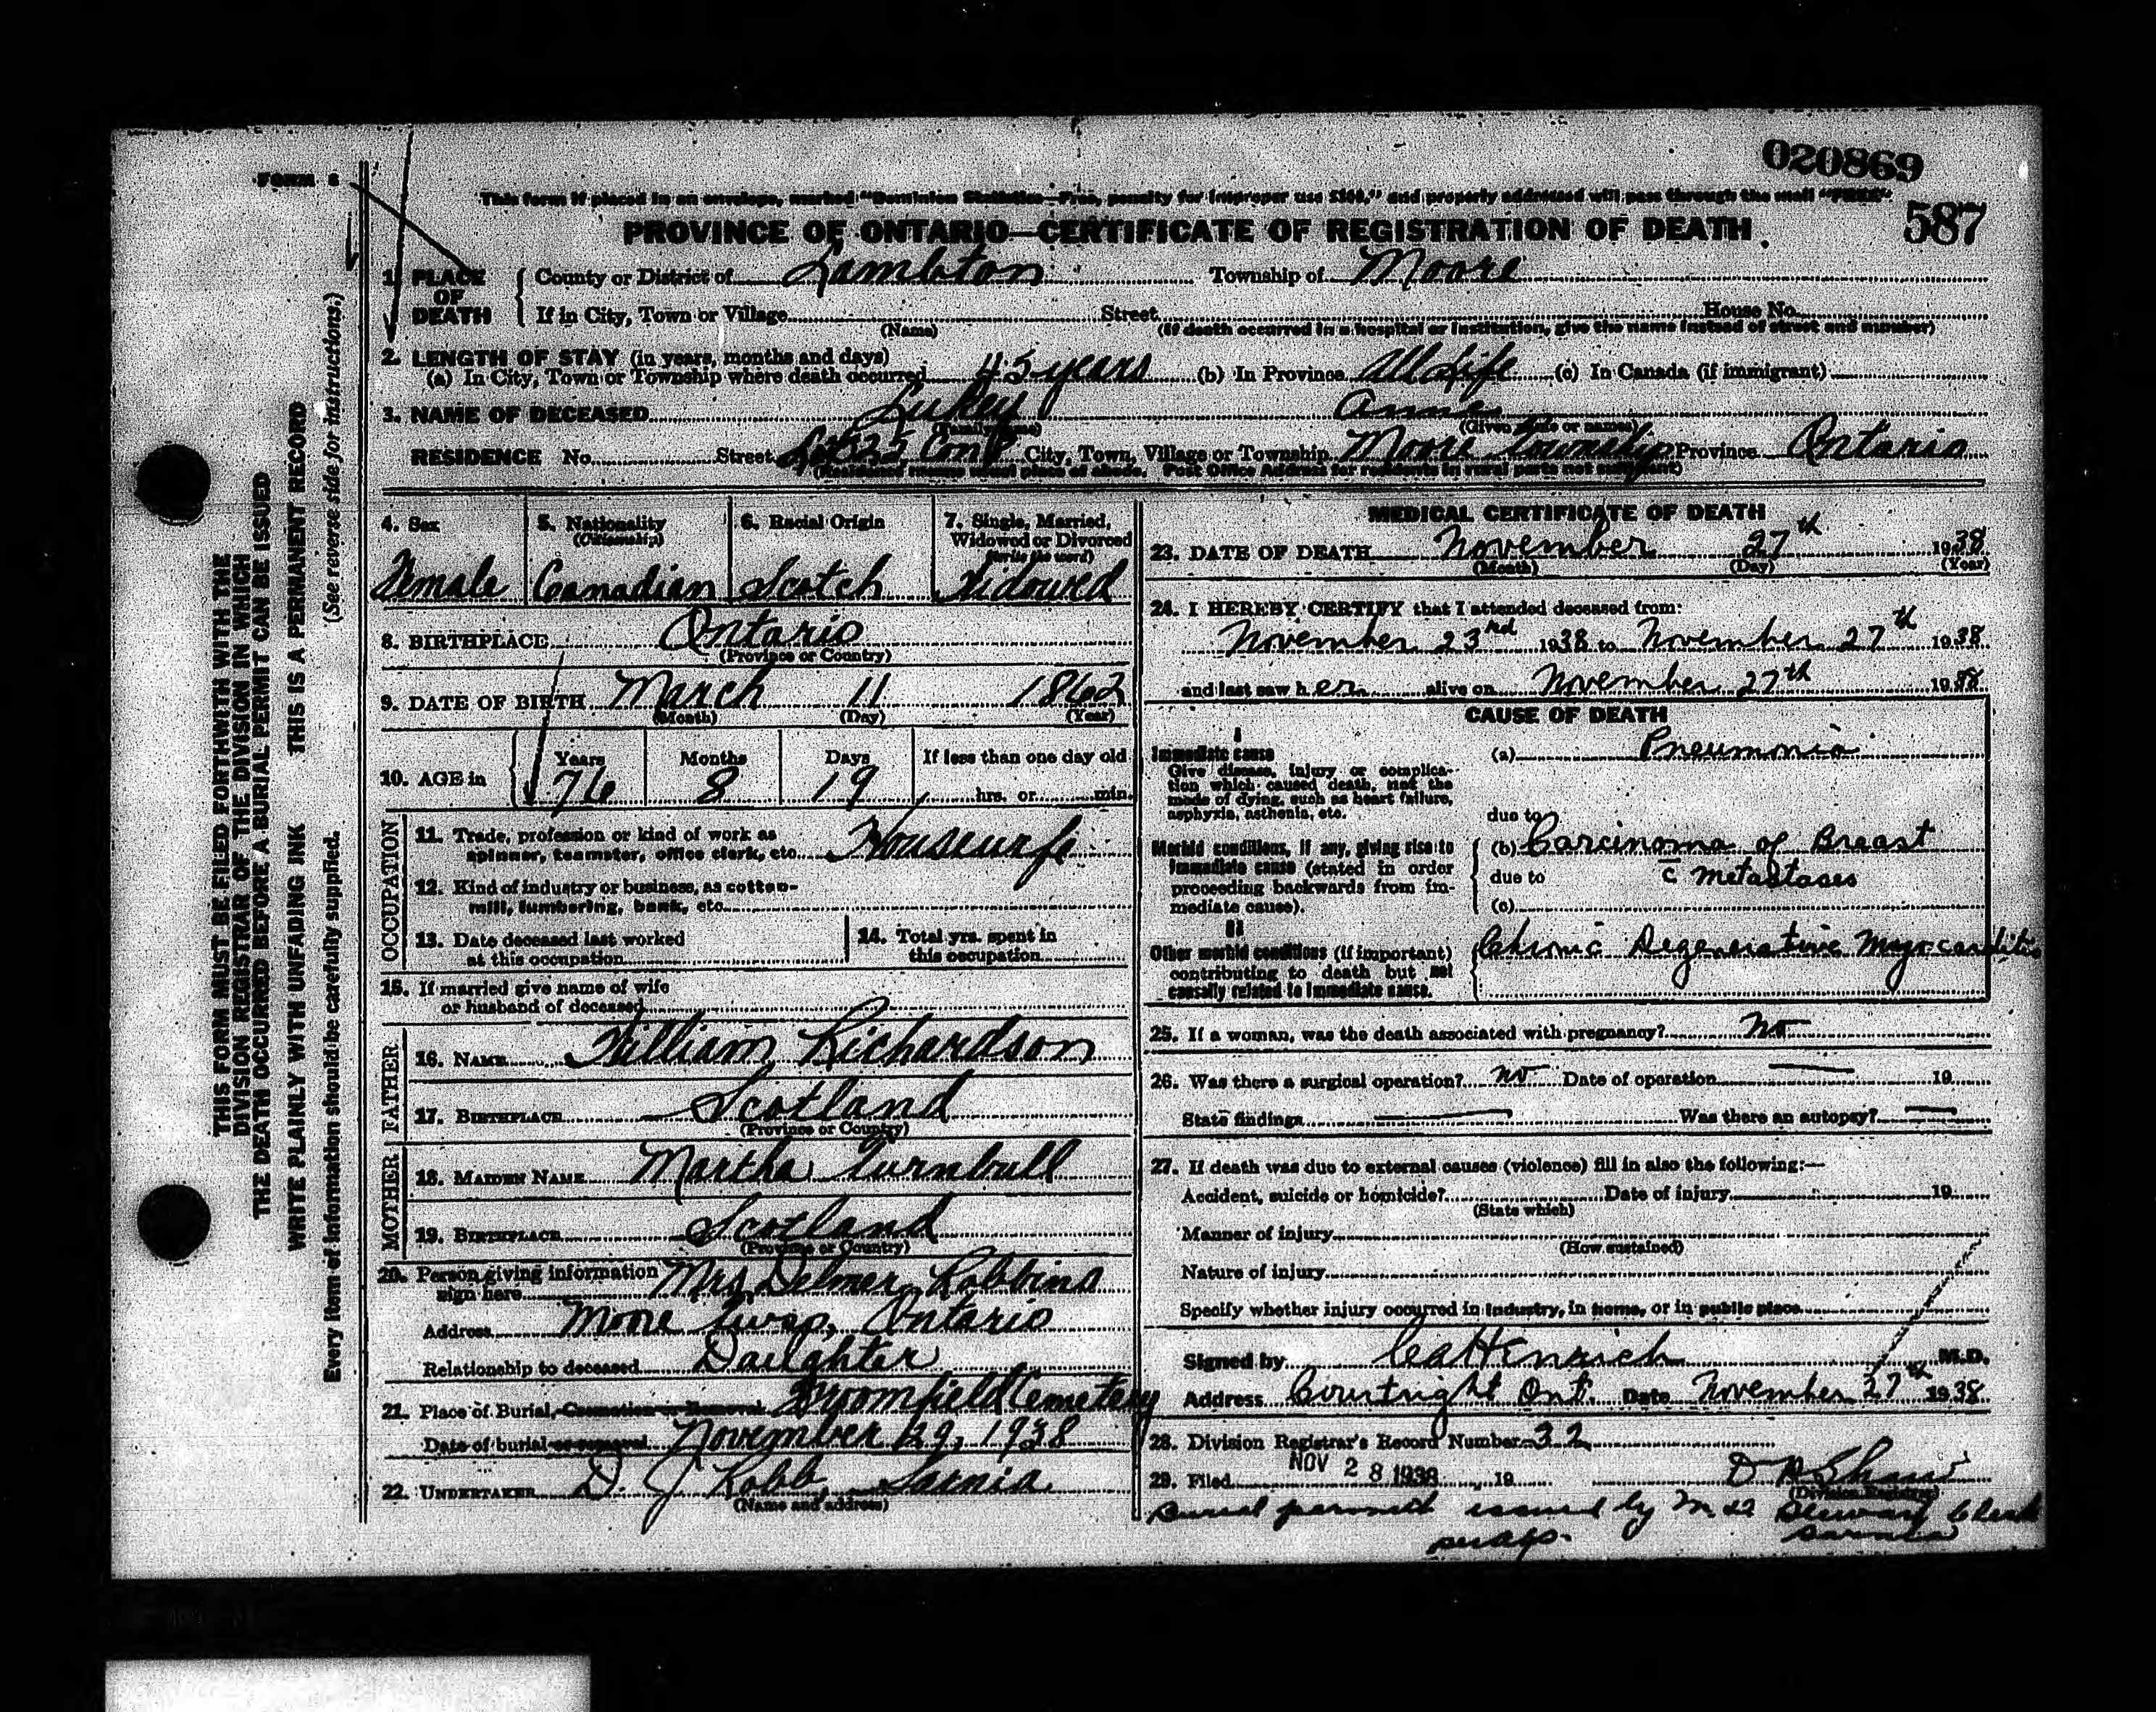 020869
FORM 8
This form if placed in an envelope, marked "Dominion Statistics—Free, penalty for improper use $300," and properly addressed will pass through the mail "FREE".
587
PROVINCE OF ONTARIO—CERTIFICATE OF REGISTRATION OF DEATH
1. PLACE OF DEATH
County or District of Lambton Township of Moore
If in City, Town or Village Street House No.
(Name) (If death occurred in a hospital or institution, give the name instead of street and number)
2. LENGTH OF STAY (in years, months and days)
(a) In City, Town or Township where death occurred 45 years (b) In Province All Life (c) In Canada (if immigrant)
3. NAME OF DECEASED Lukey Annie
(Family name) (Given name or names)
RESIDENCE No. Street Lot 25 Con City, Town, Village or Township Moore Township Province Ontario
(Residence means usual place of abode. Post Office Address for residents in rural parts not sufficient)
4. Sex
Female
5. Nationality
(Citizenship)
Canadian
6. Racial Origin
Scotch
7. Single, Married,
Widowed or Divorced
(Write the word)
Widowed
8. BIRTHPLACE Ontario
(Province or Country)
9. DATE OF BIRTH March 11 1862
(Month) (Day) (Year)
10. AGE in
Years Months Days If less than one day old
76 8 19 hrs. or min.
OCCUPATION
11. Trade, profession or kind of work as
spinner, teamster, office clerk, etc. Housewife
12. Kind of industry or business, as cotton-
mill, lumbering, bank, etc.
13. Date deceased last worked
at this occupation
14. Total yrs. spent in
this occupation
15. If married give name of wife
or husband of deceased
FATHER
16. NAME William Richardson
17. BIRTHPLACE Scotland
(Province or Country)
MOTHER
18. MAIDEN NAME Martha Turnbull
19. BIRTHPLACE Scotland
(Province or Country)
20. Person giving information
sign here Mrs Delmer Robbins
Address Moore Twsp, Ontario
Relationship to deceased Daughter
21. Place of Burial, Cremation or Removal Broomfield Cemetery
Date of burial or removal November 29, 1938
22. UNDERTAKER D. J. Robb, Sarnia
(Name and address)
MEDICAL CERTIFICATE OF DEATH
23. DATE OF DEATH November 27th 1938
(Month) (Day) (Year)
24. I HEREBY CERTIFY that I attended deceased from:
November 23rd 1938 to November 27th 1938
and last saw her alive on November 27th 1938
CAUSE OF DEATH
I
Immediate cause
Give disease, injury or complica-
tion which caused death, not the
mode of dying, such as heart failure,
asphyxia, asthenia, etc.
(a) Pneumonia
due to
Morbid conditions, if any, giving rise to
immediate cause (stated in order
proceeding backwards from im-
mediate cause).
(b) Carcinoma of Breast
due to c̄ metastases
(c)
II
Other morbid conditions (if important)
contributing to death but not
causally related to immediate cause.
Chronic Degenerative Myocarditis
25. If a woman, was the death associated with pregnancy? No
26. Was there a surgical operation? No Date of operation — 19
State findings — Was there an autopsy? —
27. If death was due to external causes (violence) fill in also the following:—
Accident, suicide or homicide? Date of injury 19
(State which)
Manner of injury
(How sustained)
Nature of injury
Specify whether injury occurred in industry, in home, or in public place
Signed by C A Henrich M.D.
Address Courtright Ont. Date November 27th 1938
28. Division Registrar's Record Number 32
29. Filed NOV 28 1938, 19 Shaw
(Division Registrar)
Burial permit issued by Clerk
Sarnia
THIS FORM MUST BE FILED FORTHWITH WITH THE
DIVISION REGISTRAR OF THE DIVISION IN WHICH
THE DEATH OCCURRED BEFORE A BURIAL PERMIT CAN BE ISSUED
WRITE PLAINLY WITH UNFADING INK THIS IS A PERMANENT RECORD
Every item of information should be carefully supplied. (See reverse side for instructions.)